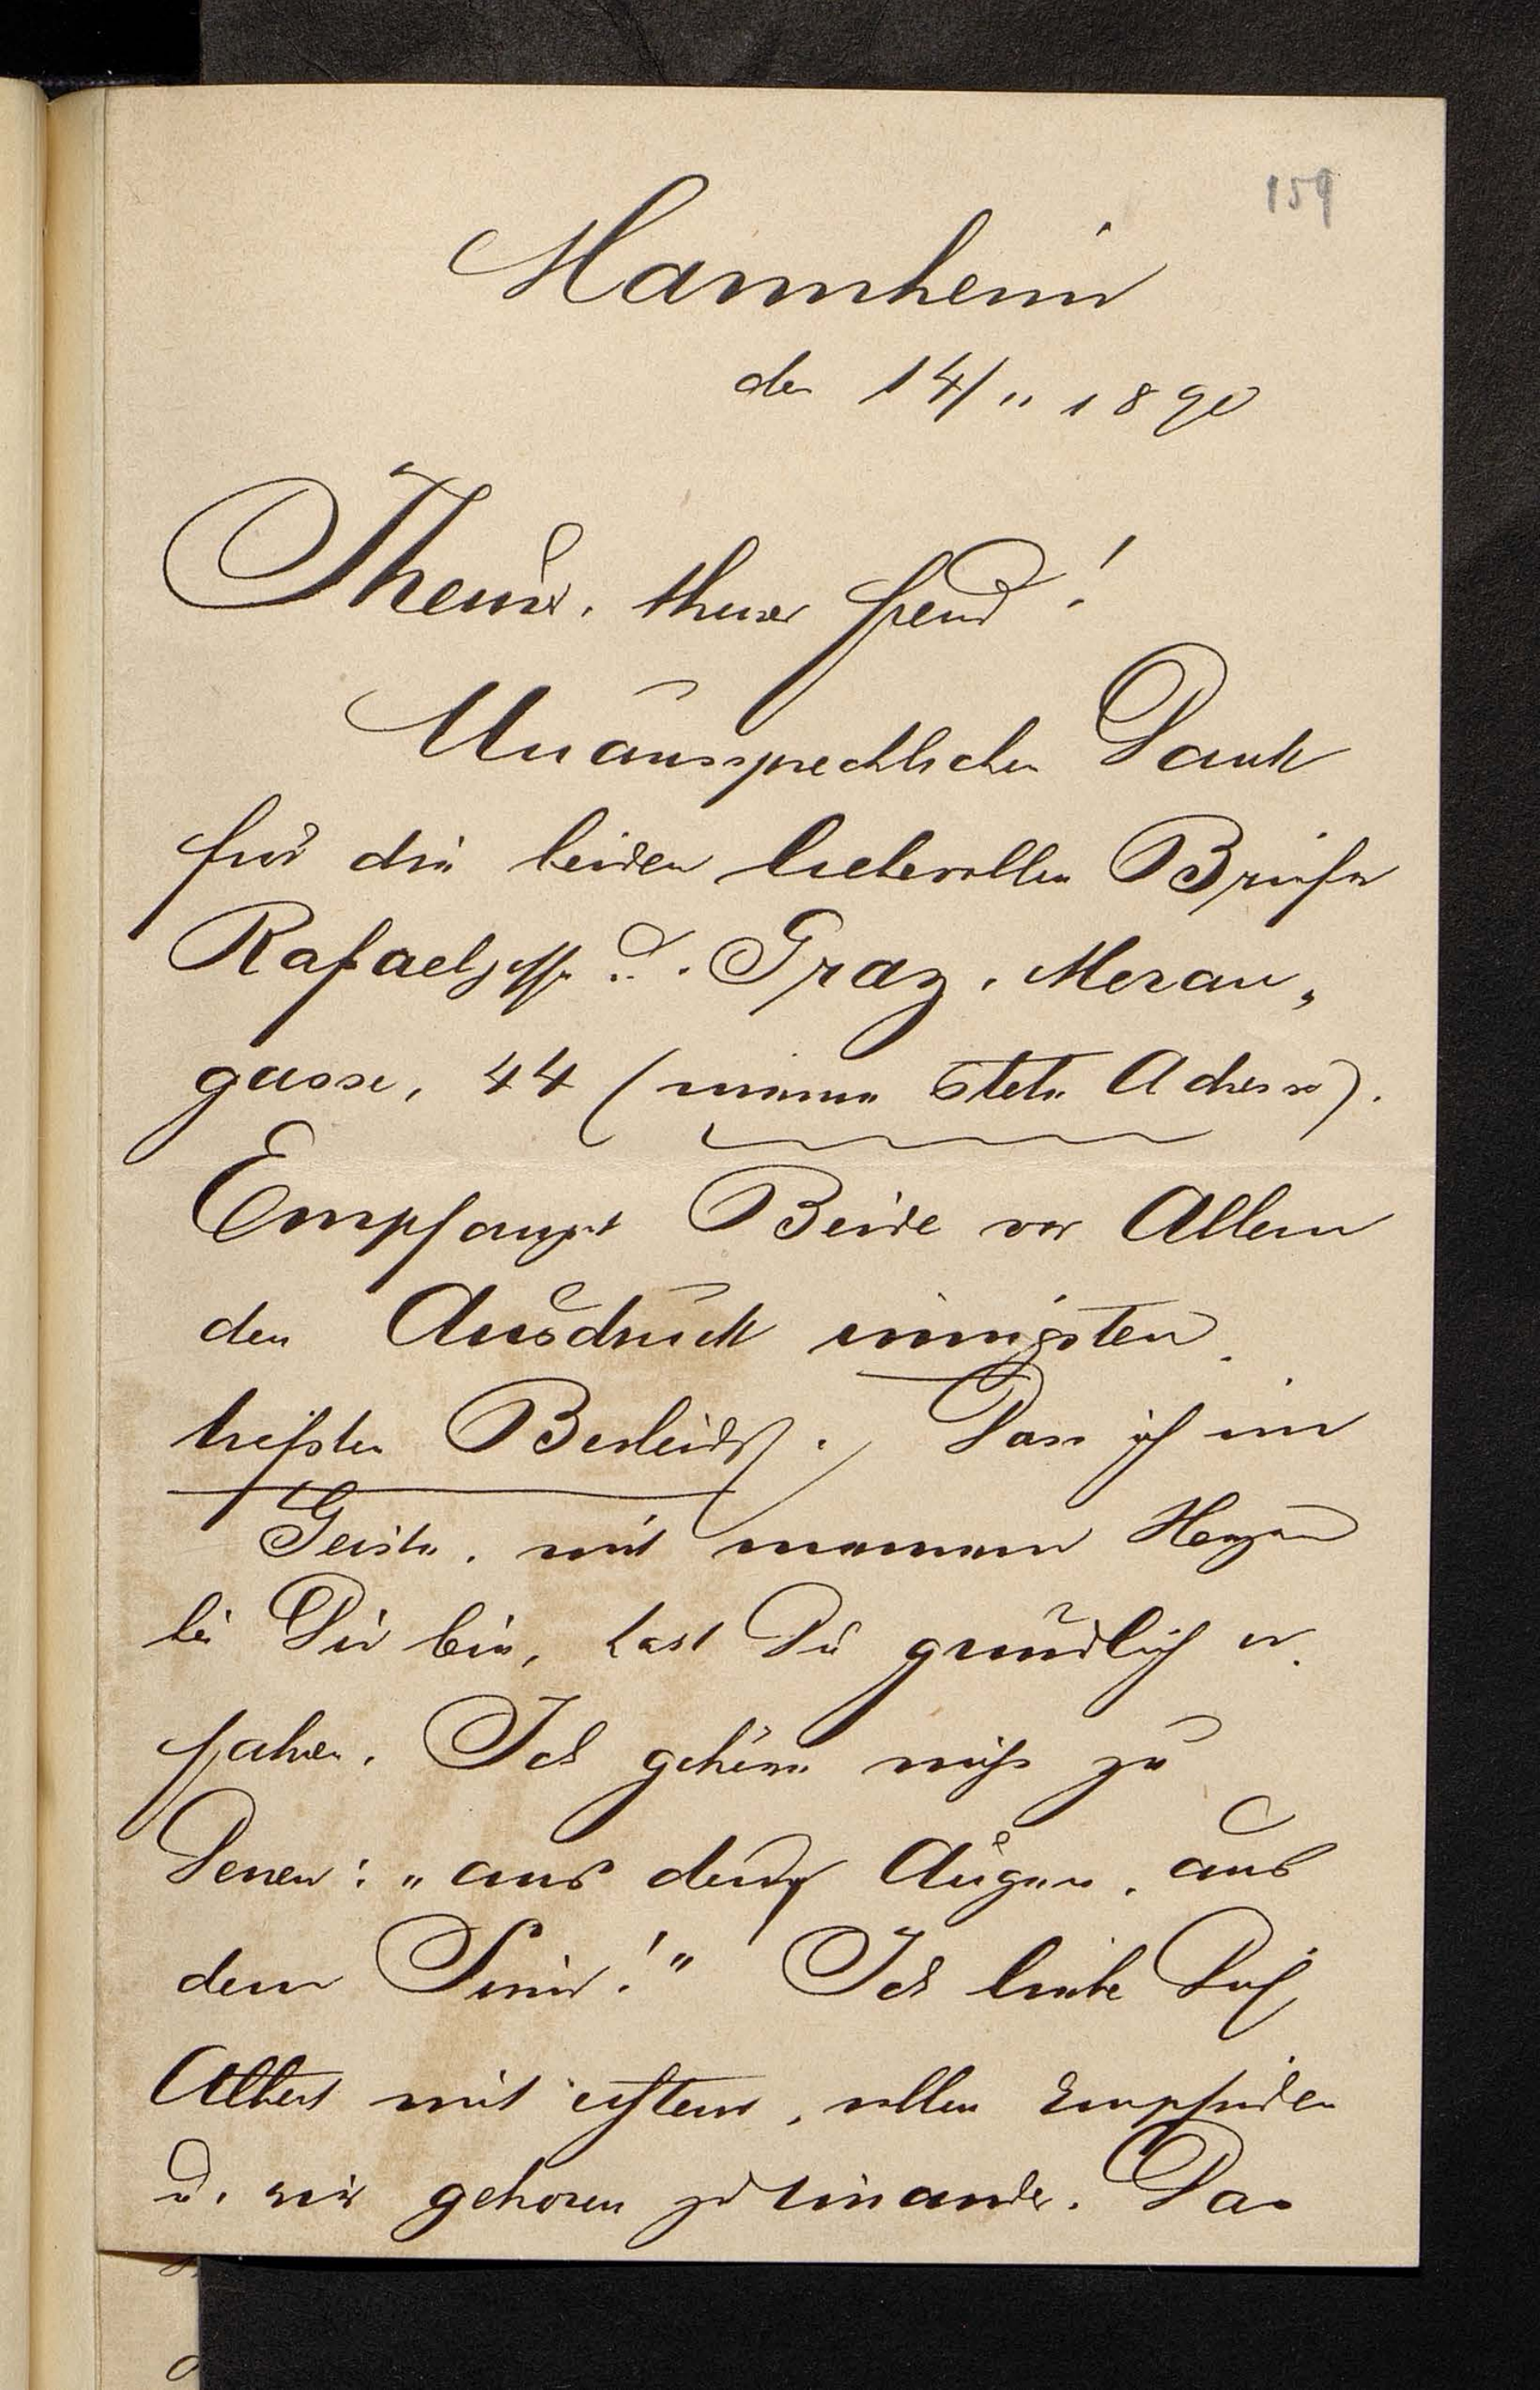 159
Mannheim
den 14/11 1890
Theurer, theurer Freund!
Unaussprechlichen Dank
für die beiden liebevollen Briefe
Rafaelgasse u. Graz, Meran„
gasse, 44 (meine stete Adresse).
Empfanget Beide vor Allem
den Ausdruck innigsten,
tiefsten Beileids. Dass ich im
Geiste, mit meinem Herzen
bei Dir bin, hast Du gründlich er,
fahren. Ich gehöre nicht zu
Denen: „aus den Augen, aus
dem Sinn!" Ich liebe Dich,
Albert mit echtem, vollen Empfinden
u. wir gehören zu einander. Das